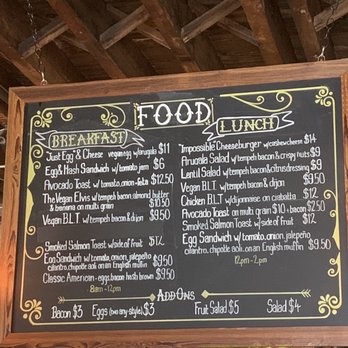 FOOD
BREAKFAST
"Just Egg" & Cheese vegan egg w/arugula $11
Egg & Hash Sandwich w/tomato jam $6
Avocado Toast w/tomato, onion + feta $12.50
The Vegan Elvis w/tempeh bacon, almond butter
& banana on multi grain $10.50
Vegan B.L.T. w/tempeh bacon & dijon $9.50
Smoked Salmon Toast w/side of fruit $12
Egg Sandwich w/tomato, onion, jalapeño
cilantro, chipotle aoli on an English muffin $9.50
Classic American - eggs bacon hash brown $9.50
8am - 12pm
LUNCH
"Impossible Cheeseburger" w/cashew cheese $14
Arugala Salad w/tempeh bacon & crispy nuts $9
Lentil Salad w/tempeh bacon & citrus dressing $8
Vegan B.L.T. w/tempeh bacon & dijon $9.50
Chicken B.L.T w/dijonnaise, on ciabatta $12
Avocado Toast on multi grain $10 + bacon $2.50
Smoked Salmon Toast w/side of fruit $12
Egg Sandwich w/tomato, onion, jalapeño
cilantro, chipotle aoli, on an English Muffin $9.50
12pm - 2pm
ADD ONS
Bacon $3 Eggs (two any-style) $3 Fruit Salad $5 Salad $4